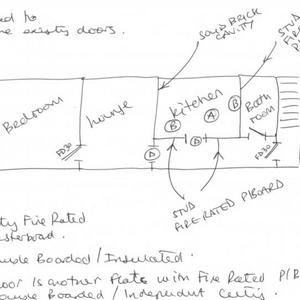 d to
ne existing doors.
SOLID BRICK
CAVITY
STUD
FIRE
Bedroom
Lounge
kitchen
Bath
Room
B
A
B
D
D
FD30
FD30
STUD
FIRE-RATED P/BOARD
ty Fire Rated
sterboard.
uble Boarded / Insulated.
oor is another Flats with Fire Rated P/B
uble Boarded / Independent Ceiling.